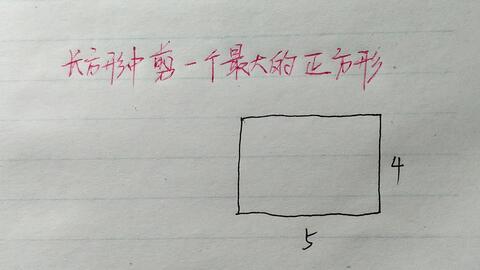 长方形中剪一个最大的正方形
4
5